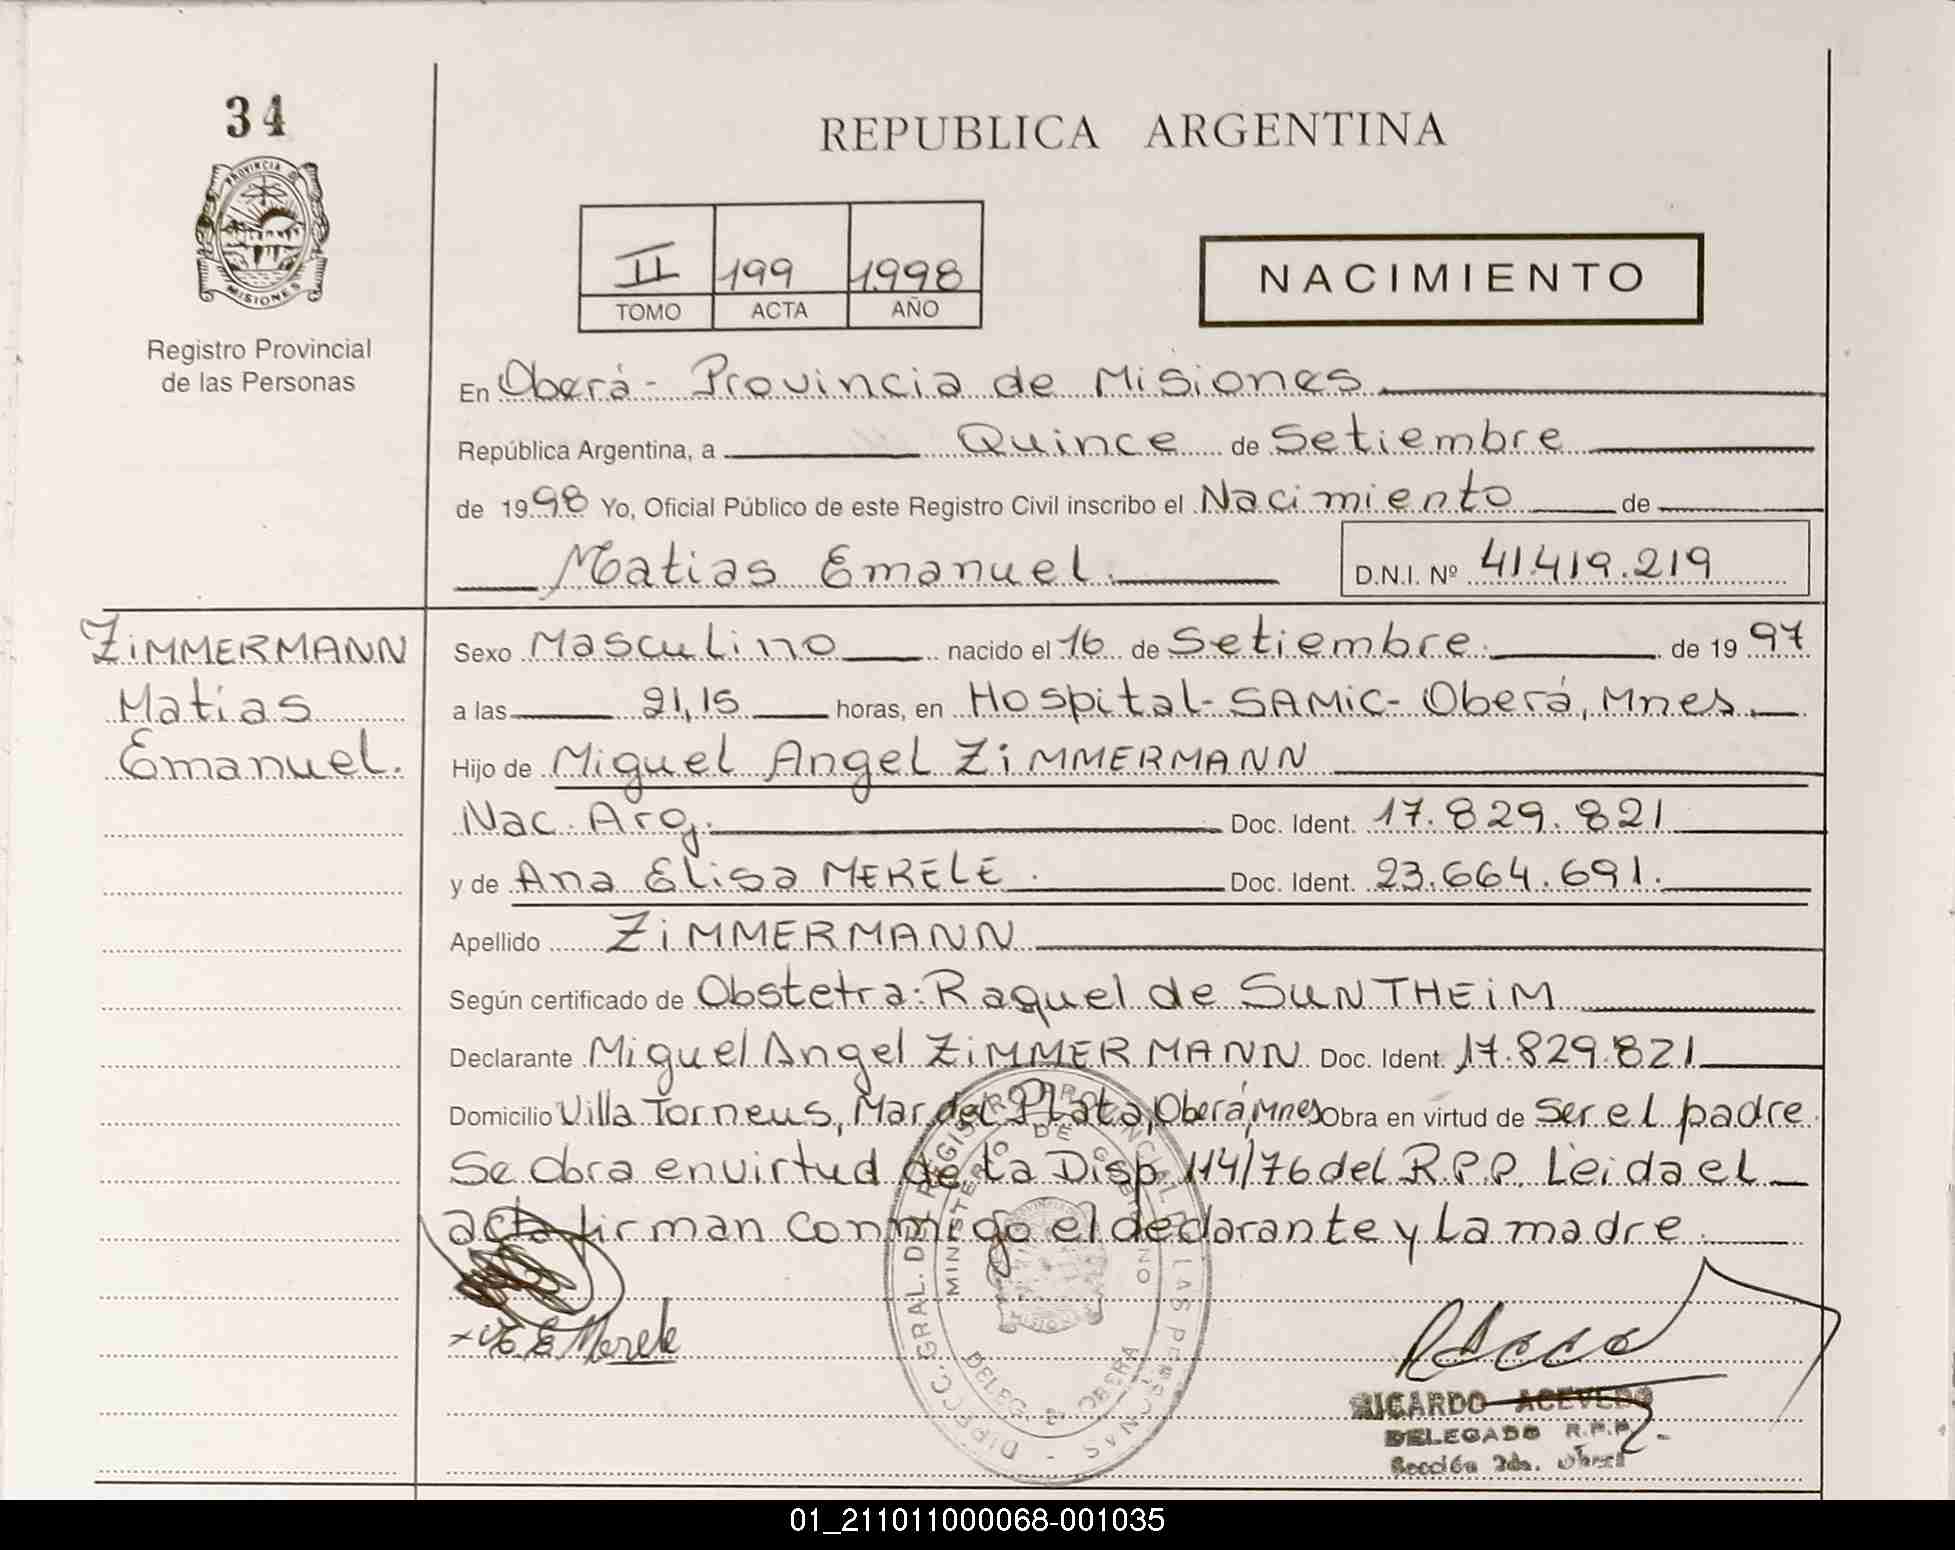 34
PROVINCIA DE
MISIONES
Registro Provincial
de las Personas
REPUBLICA ARGENTINA
II 199 1.998
TOMO ACTA AÑO
NACIMIENTO
En Oberá - Provincia de Misiones.
República Argentina, a Quince de Setiembre
de 1998 Yo, Oficial Público de este Registro Civil inscribo el Nacimiento de
Matias Emanuel. D.N.I. Nº 41.419.219
ZiMMERMANN
Matias
Emanuel.
Sexo Masculino nacido el 16 de Setiembre. de 1997
a las 21,15 horas, en Hospital-SAMiC- Oberá, Mnes.
Hijo de Miguel Angel ZiMMERMANN
Nac. Arg. Doc. Ident. 17.829.821
y de Ana Elisa MERELE. Doc. Ident. 23.664.691.
Apellido ZiMMERMANN
Según certificado de Obstetra: Raquel de SUNTHEiM
Declarante Miguel Angel ZiMMERMANN Doc. Ident. 17.829.821
Domicilio Villa Torneus, Mar del Plata, Oberá, Mnes Obra en virtud de ser el padre.
Se Obra en virtud de la Disp. 114/76 del R.P.P. Leida el
acta firman conmigo el declarante y la madre.
E Merele
DIRECC. GRAL. DEL REGISTRO PROVINCIAL DE LAS PERSONAS -
MINISTERIO DE GOBIERNO
OBERA
RICARDO ACEVEDO
DELEGADO R.P.P.
Sección 2da. Oberá
01_211011000068-001035